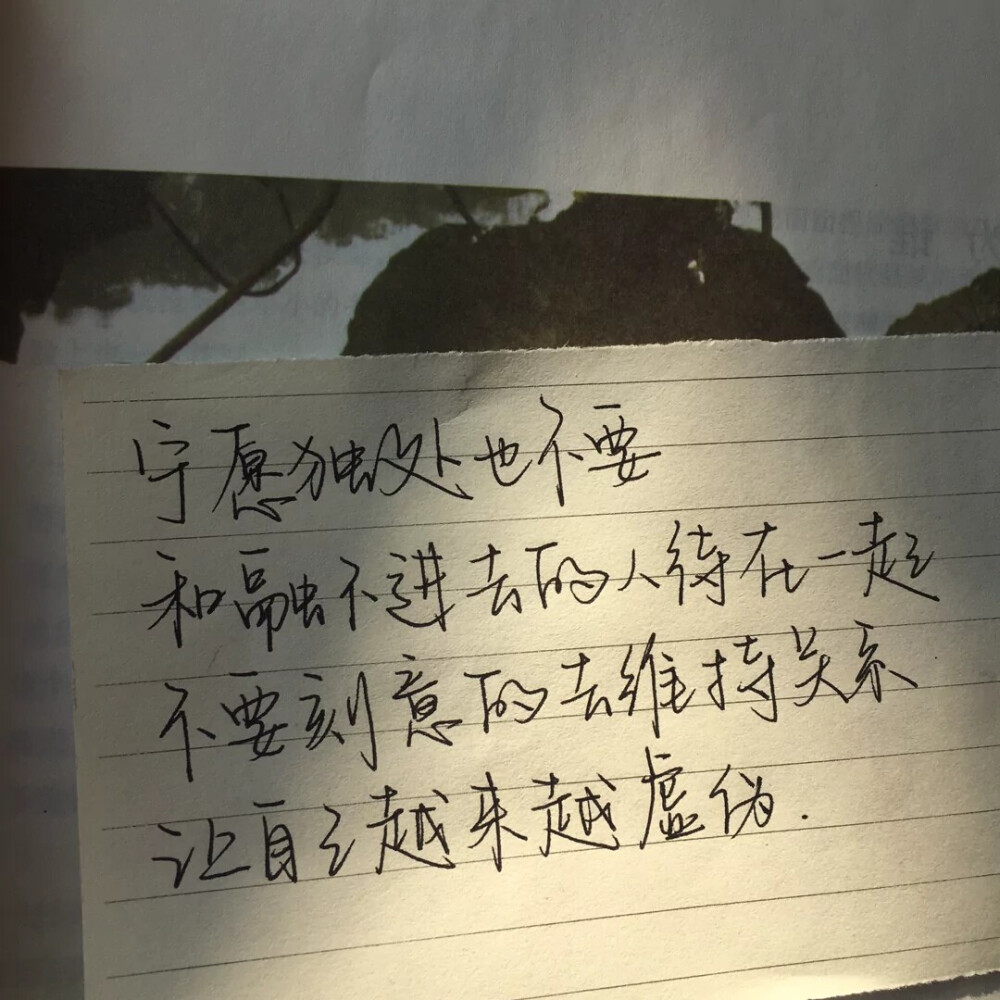 宁愿独处也不要
和融不进去的人待在一起
不要刻意的去维持关系
让自己越来越虚伪.